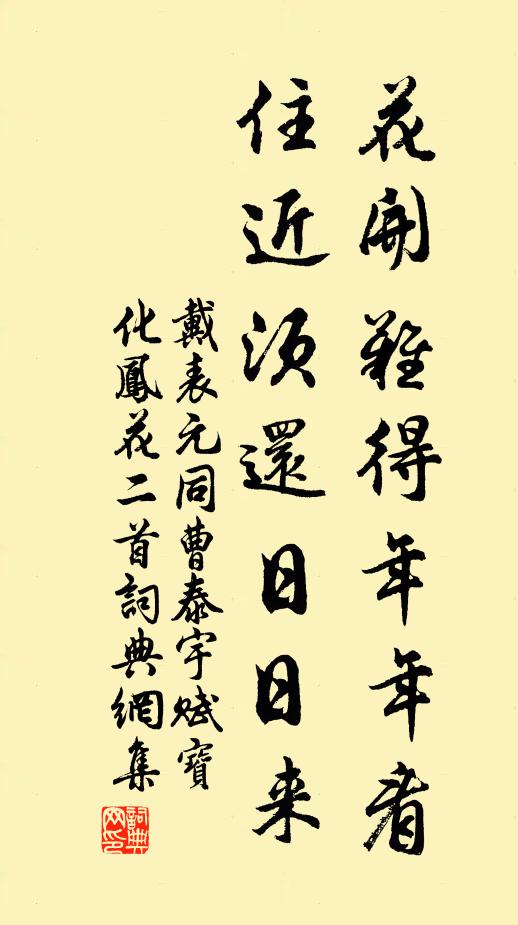 花開難得年年看
住近須還日日来
戴表元同曹泰宇賦寶
化鳳花二首詞典網集
詞典
网印